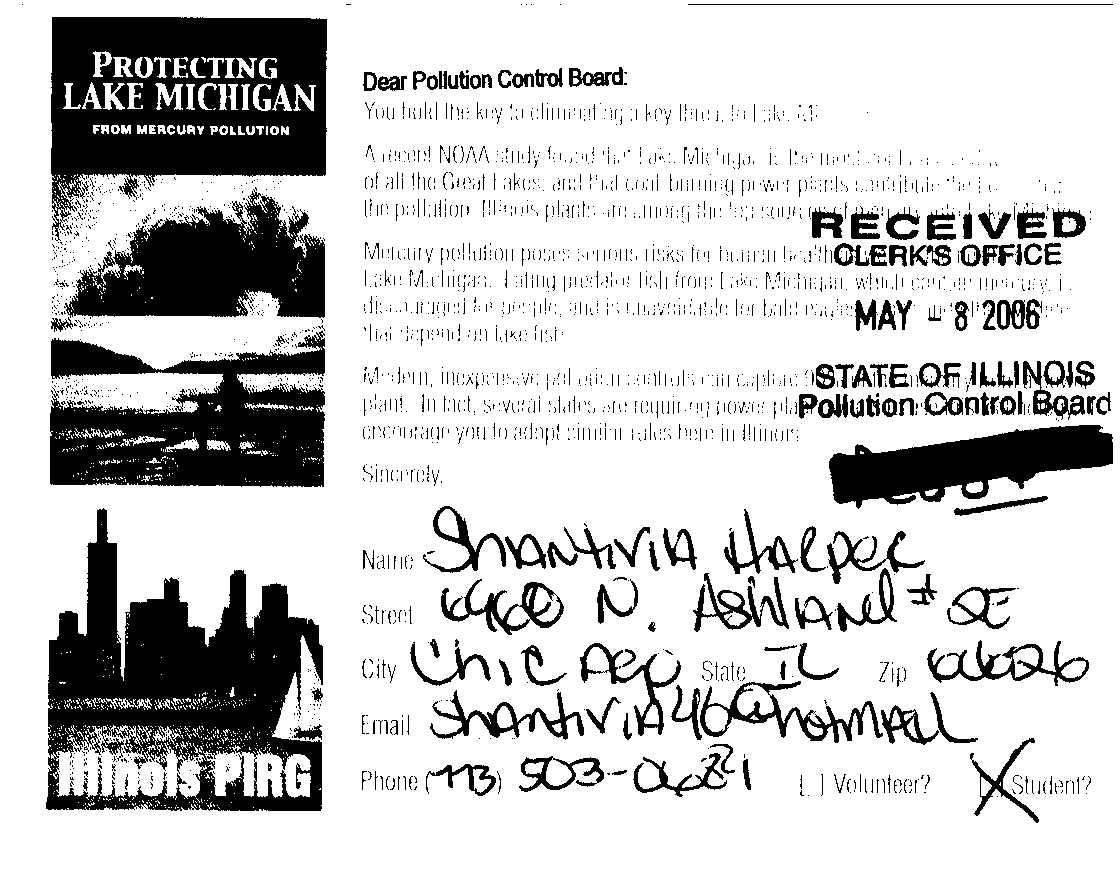 PROTECTING
LAKE MICHIGAN
FROM MERCURY POLLUTION
Dear Pollution Control Board:
You hold the key to eliminating a key threat to Lake
A recent NOAA study found that Lake Michigan is the most
of all the Great Lakes, and that coal-burning power plants contribute the
the pollution. Illinois plants are among the top sources of
RECEIVED
Mercury pollution poses serious risks for human health
CLERK'S OFFICE
Lake Michigan. Eating predator fish from Lake Michigan, which contain mercury, is
discouraged for people, and is unavoidable for bald eagles
MAY - 8 2006
that depend on lake fish.
Modern, inexpensive pollution controls can capture
STATE OF ILLINOIS
plant. In fact, several states are requiring power
Pollution Control Board
encourage you to adopt similar rules here in Illinois.
Sincerely,
Name Shantivia Harper
Street N. Ashland # 2E
City Chicago State IL Zip 60626
Email Shantivia46@hotmail
Phone (773) 503-
[ ] Volunteer? [ ] Student?
Illinois PIRG